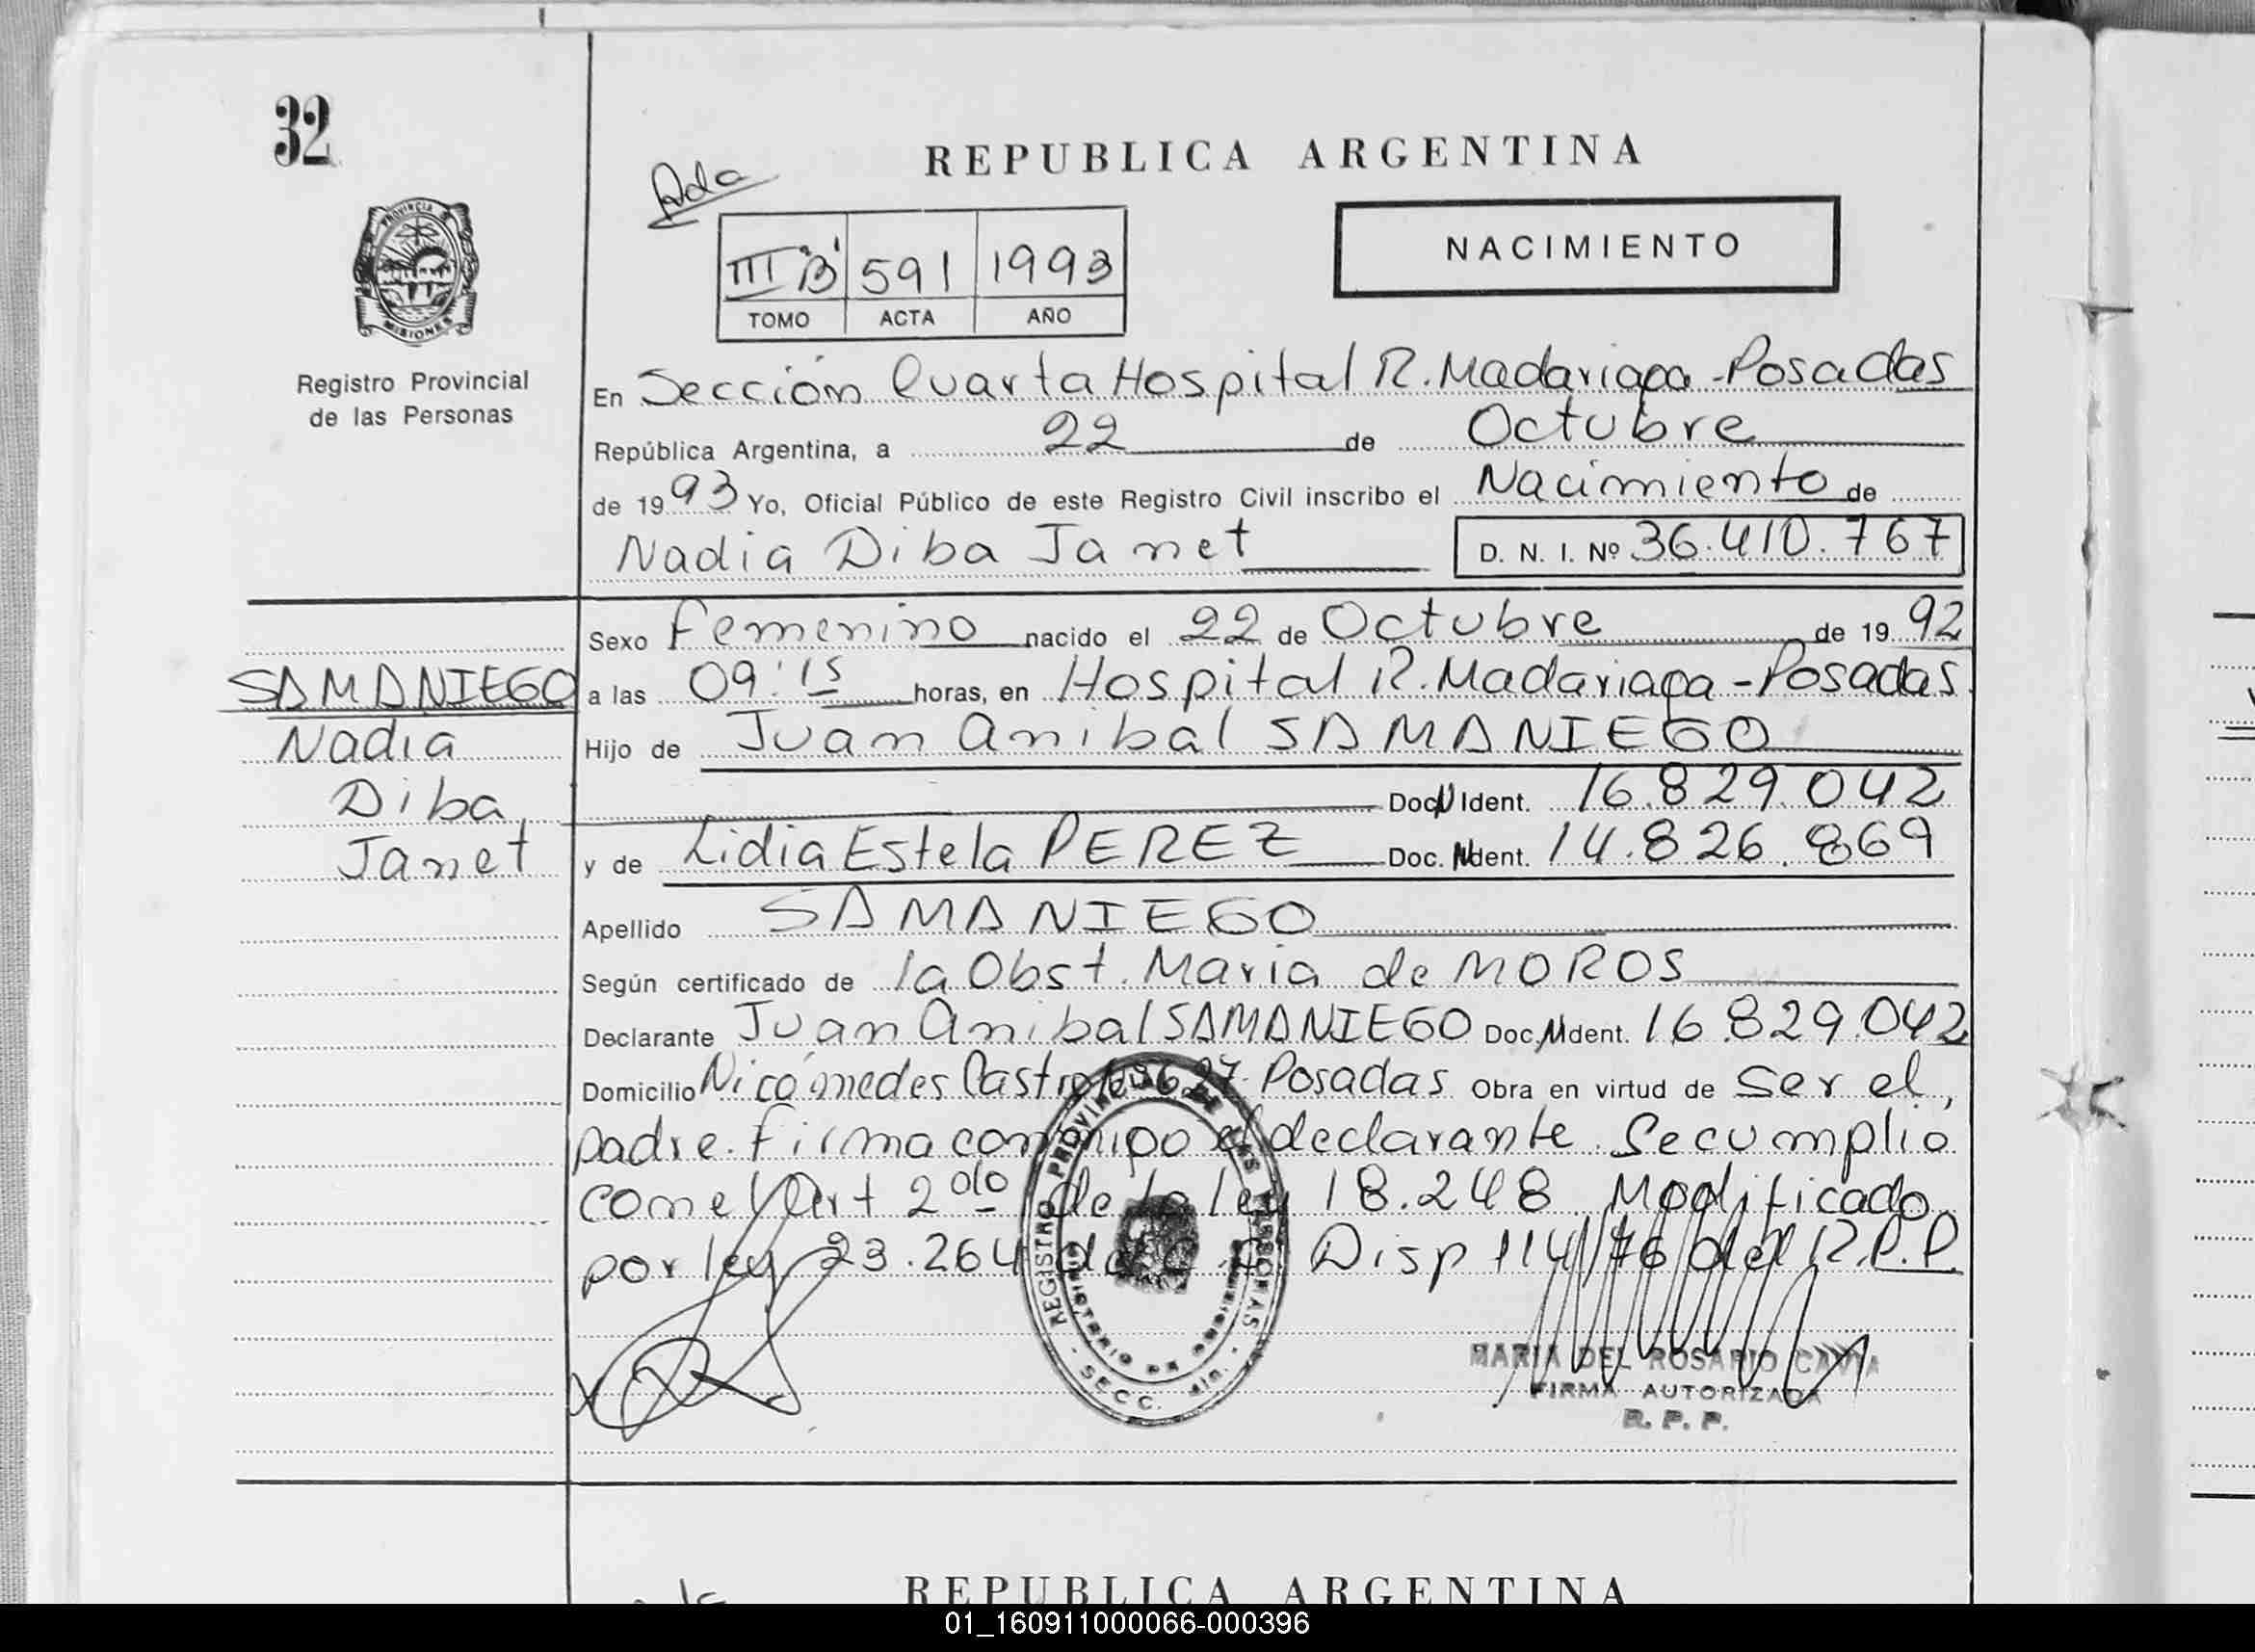 32
REPUBLICA ARGENTINA
Ada
NACIMIENTO
III "B" 591 1993
TOMO ACTA AÑO
PROVINCIA DE
MISIONES
Registro Provincial
de las Personas
En Sección Cuarta Hospital R. Madariaga - Posadas
República Argentina, a 22 de Octubre
de 1993 Yo, Oficial Público de este Registro Civil inscribo el Nacimiento de
Nadia Diba Janet D. N. I. Nº 36.410.767
Sexo Femenino nacido el 22 de Octubre de 1992
a las 09:15 horas, en Hospital R. Madariaga - Posadas.
Hijo de Juan Anibal SAMANIEGO
Doc. N Ident. 16.829.042
y de Lidia Estela PEREZ Doc. N Ident. 14.826.869
SAMANIEGO
Nadia
Diba
Janet
Apellido SAMANIEGO
Según certificado de la Obst. Maria de MOROS
Declarante Juan Anibal SAMANIEGO Doc. N Ident. 16.829.042
Domicilio Nicómedes Castro Posadas Obra en virtud de ser el,
padre. Firma conmigo el declarante. Se cumplio
con el Art 2do de la ley 18.248 Modificado
por ley 23.264 Disp 114/76 del R.P.P.
REGISTRO PROVINCIAL DE LAS PERSONAS
MINISTERIO DE GOBIERNO
SECC. 4ta.
MARIA DEL ROSARIO
FIRMA AUTORIZADA
R. P. P.
REPUBLICA ARGENTINA
01_160911000066-000396